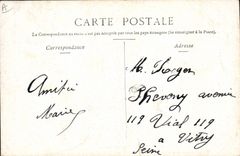 A
CARTE POSTALE
La Correspondance au recto n'est pas acceptée par tous les pays étrangers (Se renseigner à la Poste).
Correspondance
Adresse
Amitié
Marie
M.
avenue
119 119
à Vitry
Seine